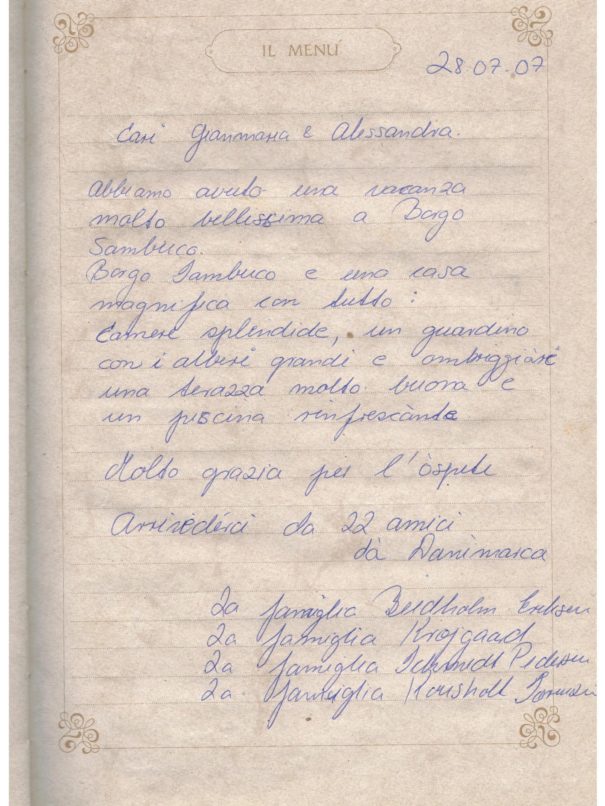 IL MENÚ
28.07.07
Cari Gianmaria e Alessandra.
Abbiamo avuto una vacanza
molto bellissima a Borgo
Sambuco.
Borgo Sambuco e una casa
magnifica con tutto:
Camere splendide, un guardino
con i alberi grandi e
una terazza molto buona e
un piscina rinfrescànte
Molto grazia per l'òspite
Arrivedérci da 22 amici
dà Danimarca
La famiglia Beidholm Eriksen
La famiglia Krojgaard
La famiglia Schmidt Pedersen
La famiglia Kousholt